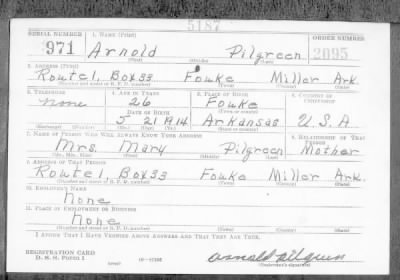 5187
SERIAL NUMBER 1. NAME (Print) ORDER NUMBER
971 Arnold Pilgreen 2095
(First) (Middle) (Last)
2. ADDRESS (Print)
Route 1, Box 33 Fouke Miller Ark.
(Number and street or R. F. D. number) (Town) (County) (State)
3. TELEPHONE 4. AGE IN YEARS 5. PLACE OF BIRTH 6. COUNTRY OF CITIZENSHIP
None 26 Fouke
DATE OF BIRTH (Town or county)
5 21 1914 Arkansas U.S.A.
(Exchange) (Number) (Mo.) (Day) (Yr.) (State or country)
7. NAME OF PERSON WHO WILL ALWAYS KNOW YOUR ADDRESS 8. RELATIONSHIP OF THAT PERSON
Mrs. Mary Pilgreen Mother
(Mr., Mrs., Miss) (First) (Middle) (Last)
9. ADDRESS OF THAT PERSON
Route 1, Box 33 Fouke Miller Ark.
(Number and street or R. F. D. number) (Town) (County) (State)
10. EMPLOYER'S NAME
None
11. PLACE OF EMPLOYMENT OR BUSINESS
None
(Number and street or R. F. D. number) (Town) (County) (State)
I AFFIRM THAT I HAVE VERIFIED ABOVE ANSWERS AND THAT THEY ARE TRUE.
REGISTRATION CARD
D. S. S. FORM 1 (over) Arnold Pilgreen
(Registrant's signature)